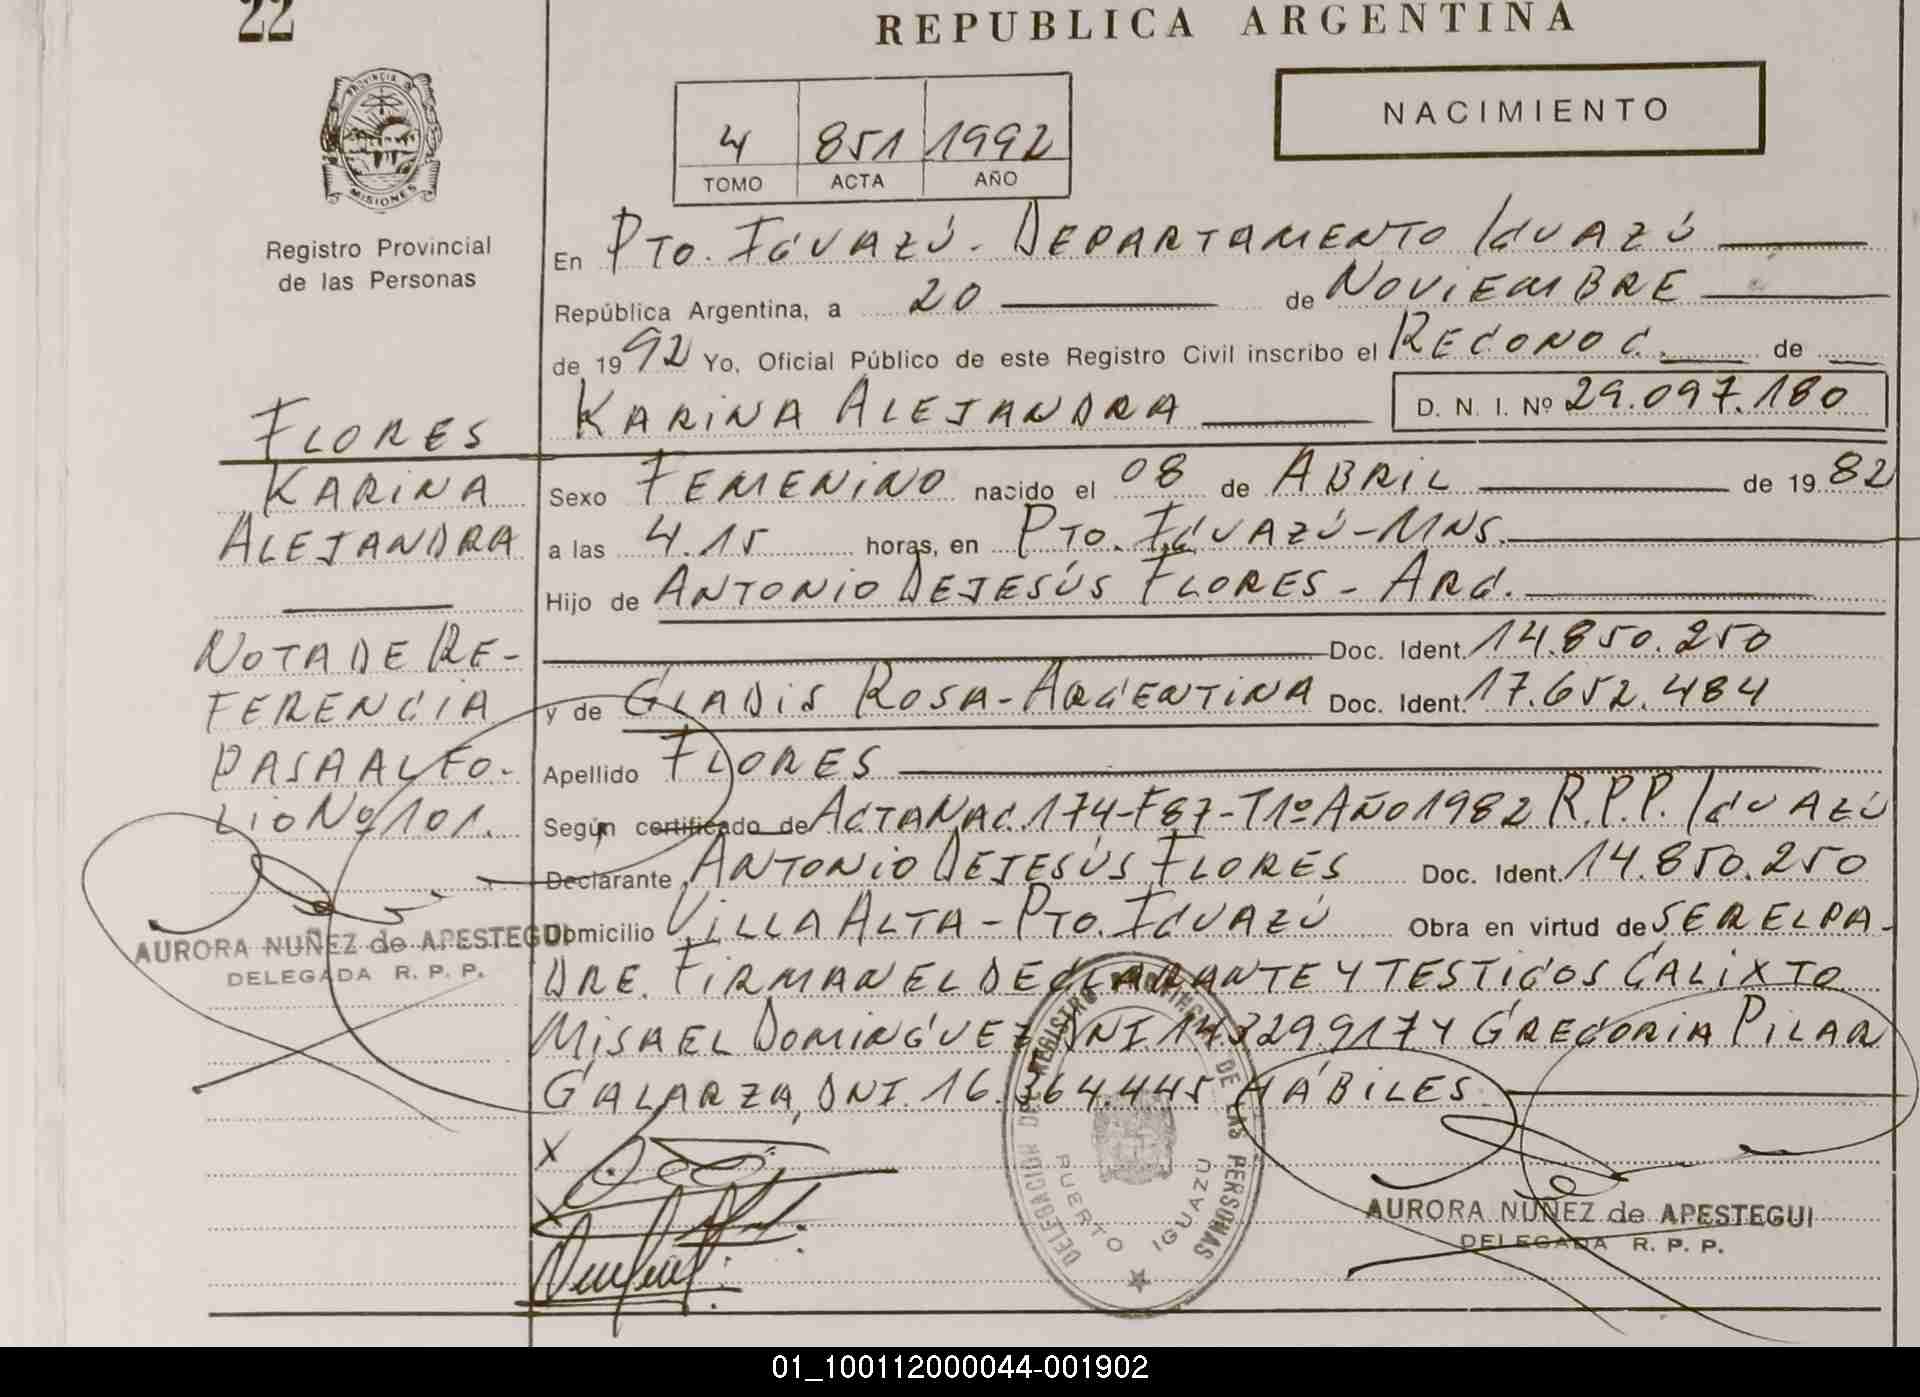 22
REPUBLICA ARGENTINA
PROVINCIA DE
MISIONES
4 851 1992
TOMO ACTA AÑO
NACIMIENTO
Registro Provincial
de las Personas
En PTO. IGUAZÚ - DEPARTAMENTO IGUAZÚ
República Argentina, a 20 de NOVIEMBRE
de 1992 Yo, Oficial Público de este Registro Civil inscribo el RECONOC. de
KARINA ALEJANDRA D. N. I. Nº 29.097.180
FLORES
KARINA
ALEJANDRA
NOTA DE RE-
FERENCIA
PASA AL FO-
LIO Nº 101.
AURORA NUÑEZ de APESTEGUI
DELEGADA R. P. P.
Sexo FEMENINO nacido el 08 de ABRIL de 1982
a las 4.15 horas, en PTO. IGUAZÚ-MNS.
Hijo de ANTONIO DEJESÚS FLORES - ARG.
Doc. Ident. 14.850.250
y de GLADIS ROSA-ARGENTINA Doc. Ident. 17.652.484
Apellido FLORES
Según certificado de ACTA NAC. 174-F87-T1º AÑO 1982 R.P.P. IGUAZÚ
Declarante ANTONIO DEJESÚS FLORES Doc. Ident. 14.850.250
Domicilio VILLA ALTA - PTO. IGUAZÚ Obra en virtud de SER EL PA-
DRE. FIRMAN EL DECLARANTE Y TESTIGOS CALIXTO
MISAEL DOMINGUEZ DNI. 14329917 Y GREGORIA PILAR
GALARZA, DNI. 16.364.445 HÁBILES
DELEGACION DEL REGISTRO PROVINCIAL DE LAS PERSONAS
PUERTO IGUAZU
AURORA NUÑEZ de APESTEGUI
DELEGADA R. P. P.
01_100112000044-001902